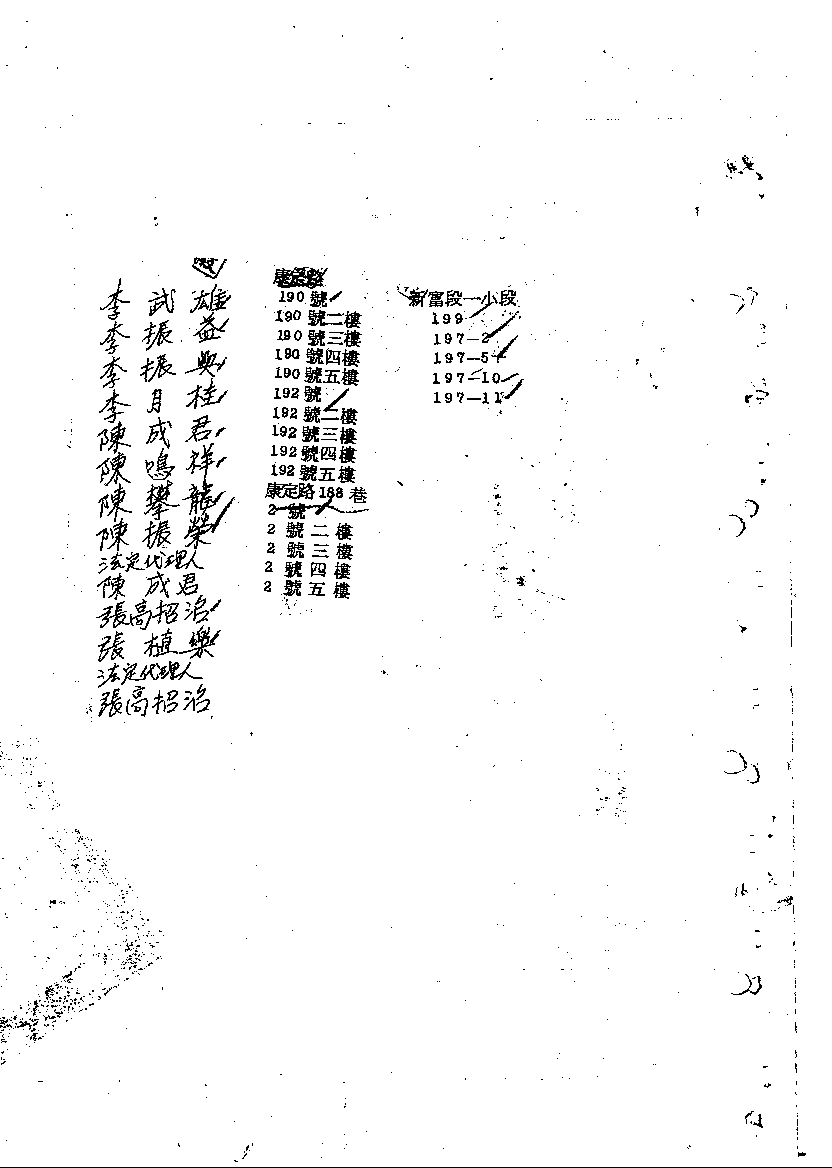 李武雄
李振益
李振興
李月桂
陳成君
陳鳴祥
陳攀龍
陳振榮
法定代理人
陳成君
張高招治
張植樂
法定代理人
張高招治
康定路
190號
190號二樓
190號三樓
190號四樓
190號五樓
192號
192號二樓
192號三樓
192號四樓
192號五樓
康定路188巷
2號
2號二樓
2號三樓
2號四樓
2號五樓
新富段一小段
199
197-2
197-5
197-10
197-11